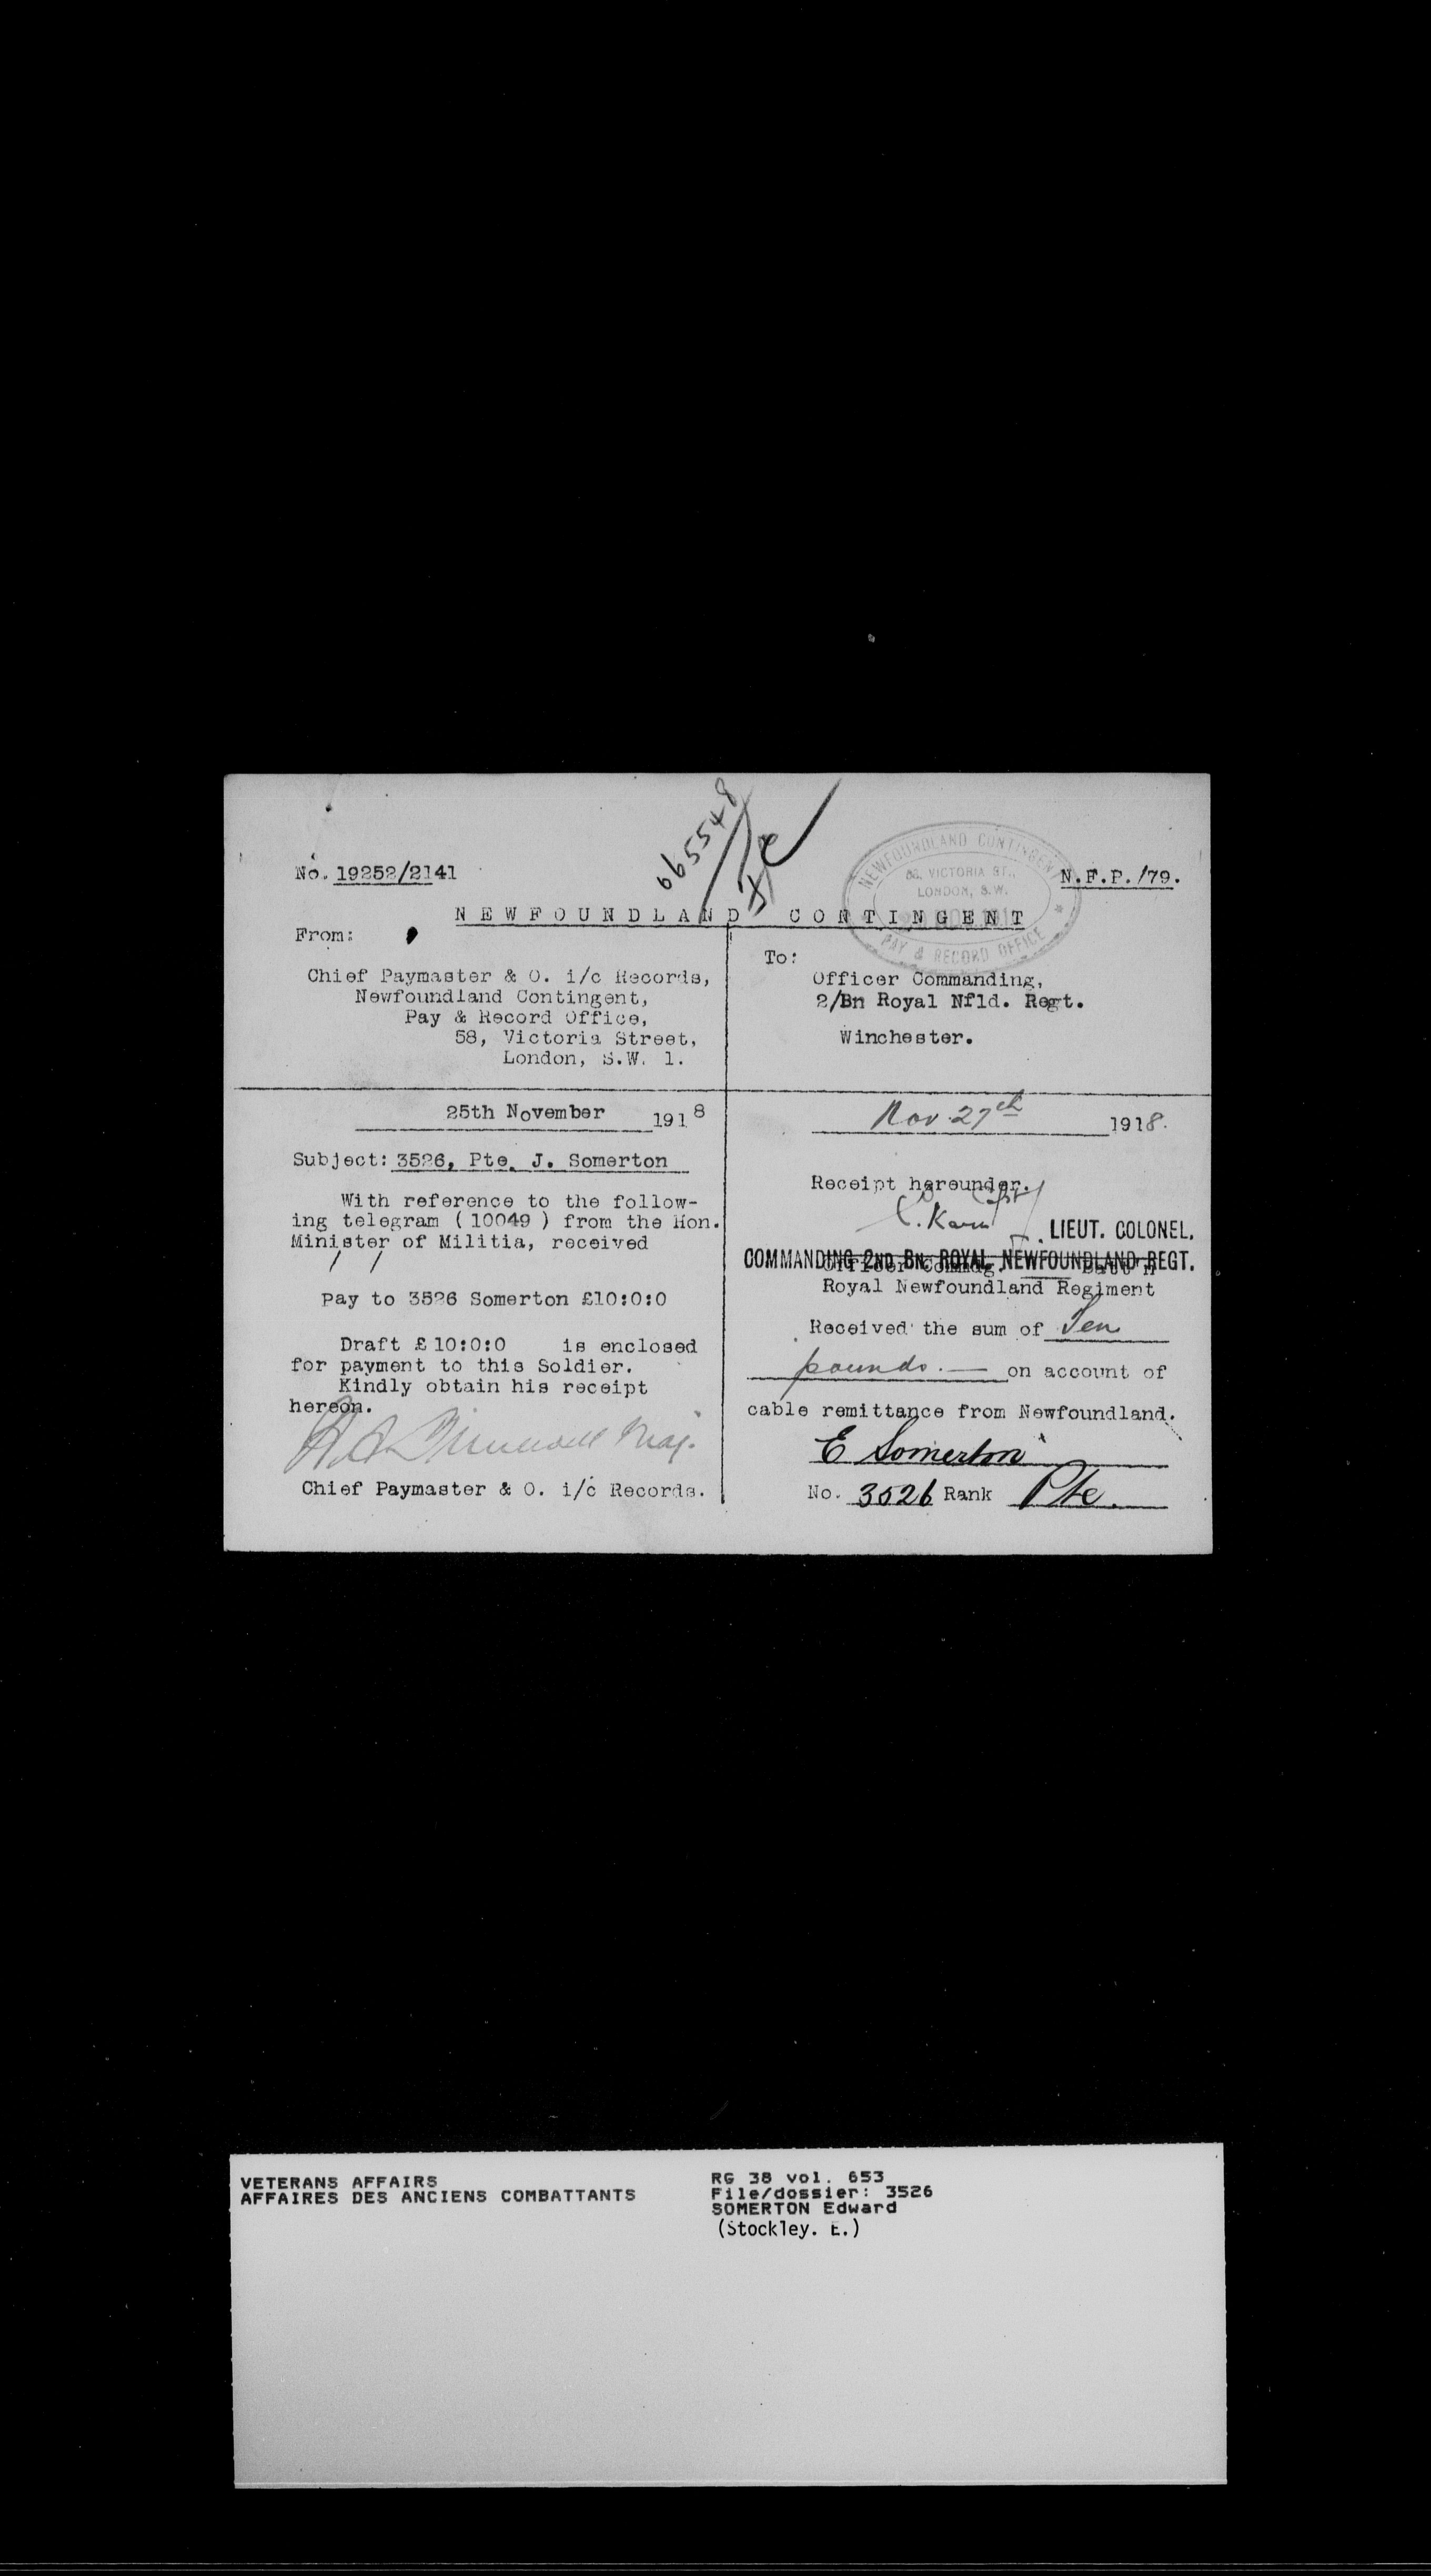 665548
NEWFOUNDLAND CONTINGENT
58, VICTORIA ST.,
LONDON, S.W.
PAY & RECORD OFFICE
No. 19252/2141
N.F.P./79.
NEWFOUNDLAND CONTINGENT
From:
Chief Paymaster & O. i/c Records,
Newfoundland Contingent,
Pay & Record Office,
58, Victoria Street,
London, S.W. 1.
To:
Officer Commanding,
2/Bn Royal Nfld. Regt.
Winchester.
25th November 1918
Subject: 3526, Pte. J. Somerton
With reference to the follow-
ing telegram (10049) from the Hon.
Minister of Militia, received
/ /
Pay to 3526 Somerton £10:0:0
Draft £10:0:0 is enclosed
for payment to this Soldier.
Kindly obtain his receipt
hereon.
Maj.
Chief Paymaster & O. i/c Records.
Nov. 27th 1918.
Receipt hereunder.
Capt
LIEUT. COLONEL.
COMMANDING 2ND BN. ROYAL NEWFOUNDLAND REGT.
Officer Commdg. Batt'n
Royal Newfoundland Regiment
Received the sum of Ten
pounds. — on account of
cable remittance from Newfoundland.
E Somerton
No. 3526 Rank Pte.
VETERANS AFFAIRS
AFFAIRES DES ANCIENS COMBATTANTS
RG 38 vol. 653
File/dossier: 3526
SOMERTON Edward
(Stockley. E.)